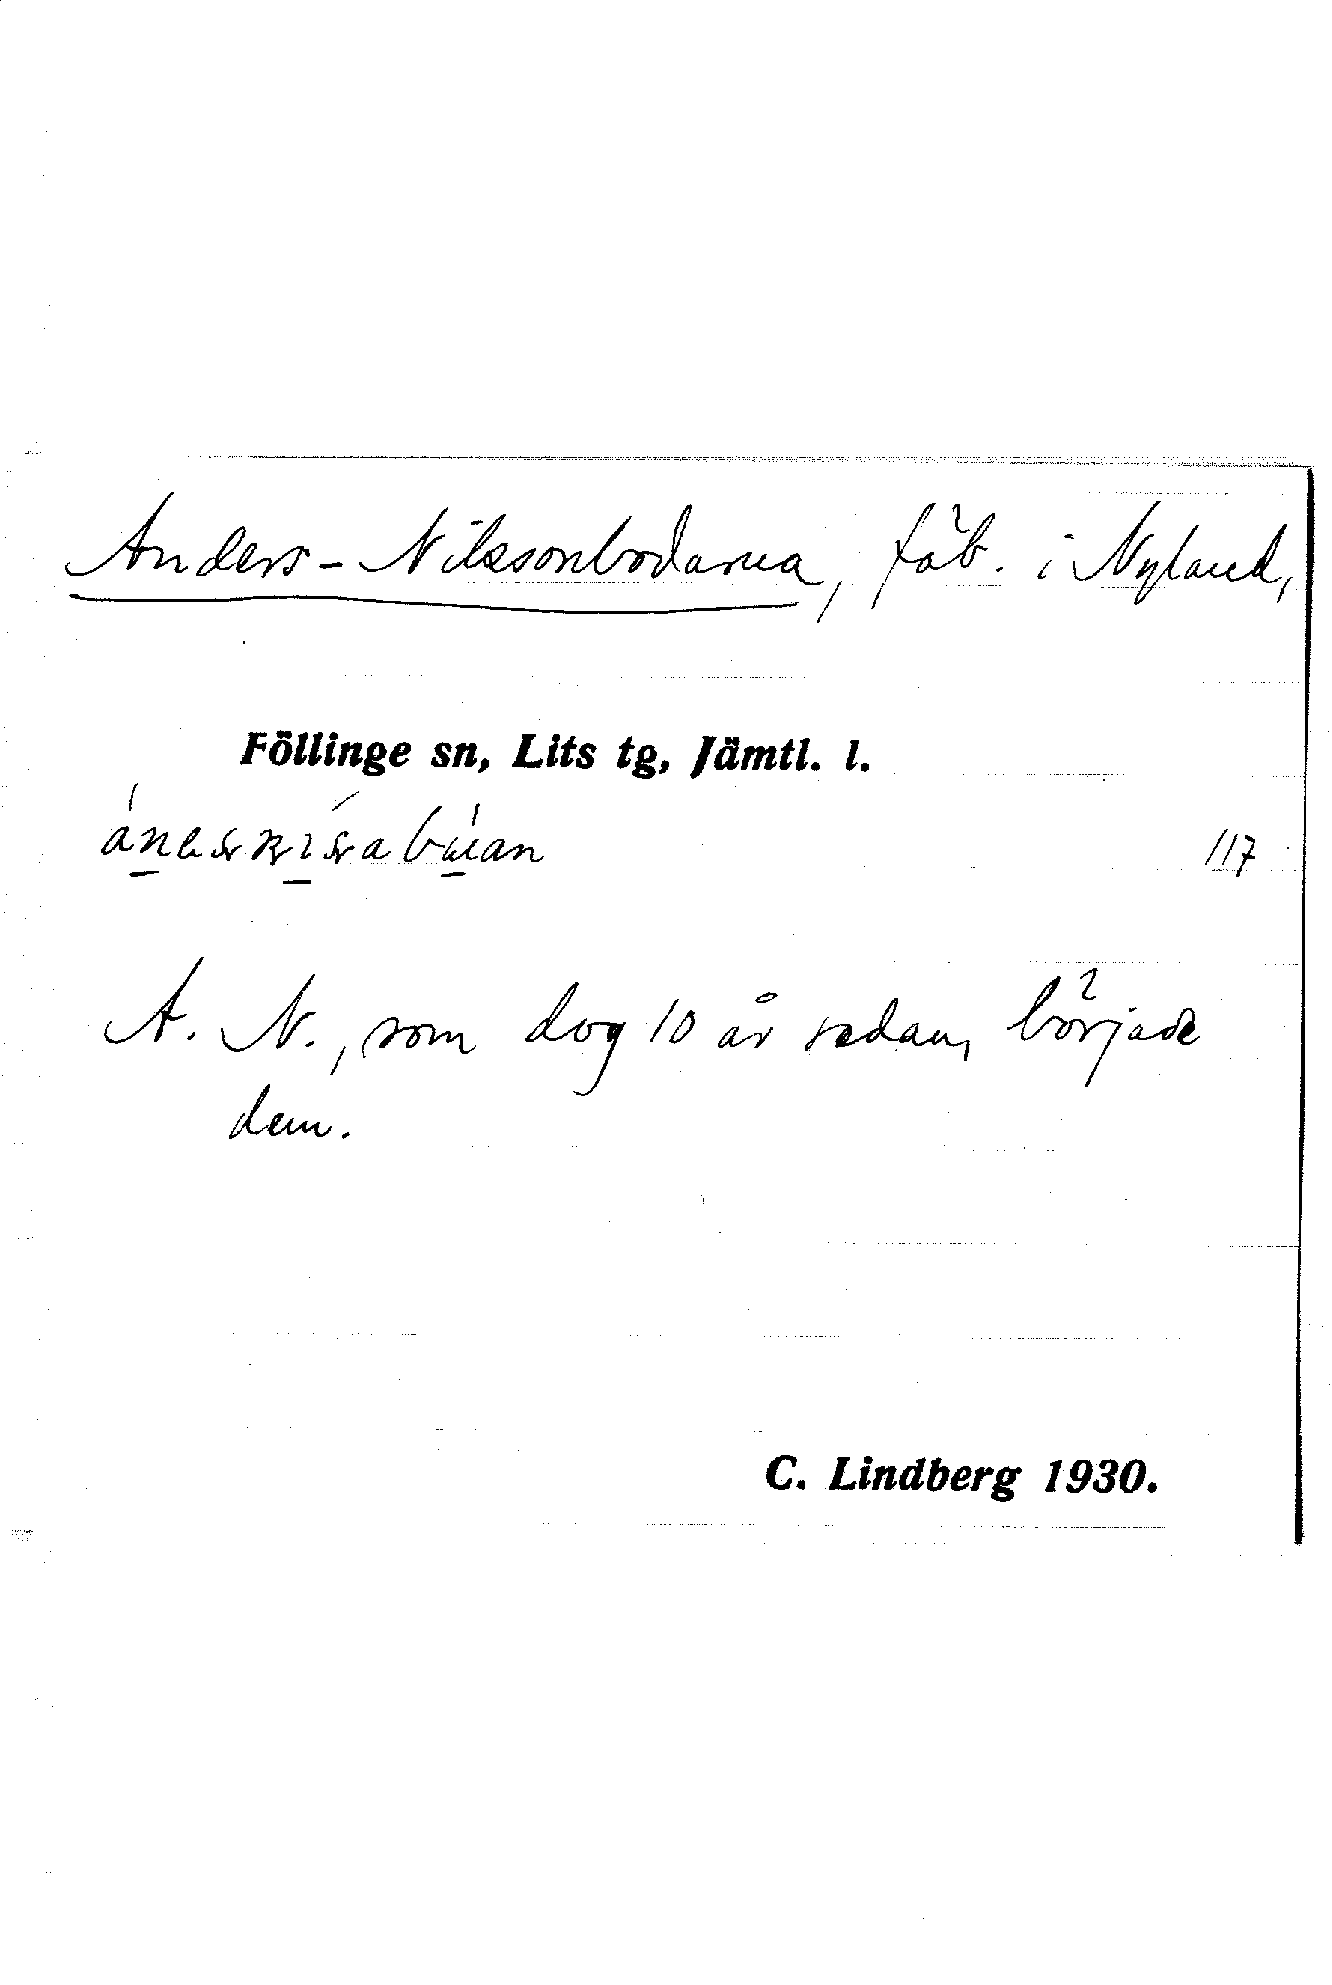 Anders-Nilssonbodarna, fäb. i Nyland,
Föllinge sn, Lits tg, Jämtl. l.
117
A. N., som dog 10 år sedan, började
dem.
C. Lindberg 1930.